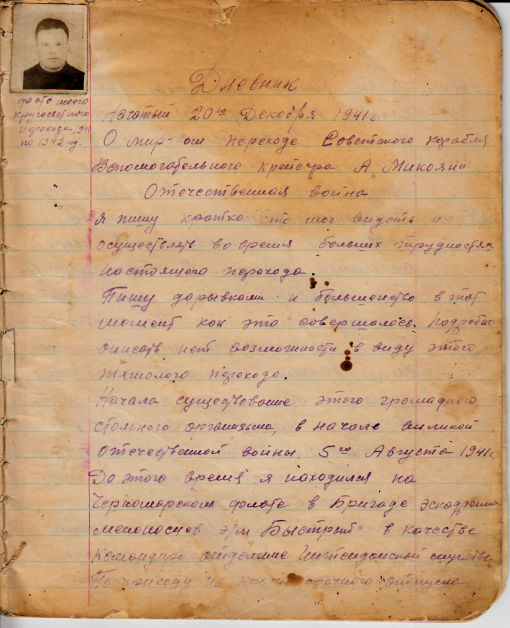 фото моего
кругосветного
перехода 1941
по 1942 год.
Дневник
Начатый 20го Декабря 1941г
О мировом переходе Советского корабля
Вспомогательного крейсера А. Микоян
Отечественная война
Я пишу кратко что мог видеть и
осуществлять во время больших трудностях
настоящего перехода.
Пишу дорывками и большинство в тот
момент как это совершалось. подробно
описать нет возможности в виду этого
тяжолого перехода.
Начала существование этого громадного
стольного организьма, в начале великой
отечественной войны. 5го Августа 1941г.
До этого время я находился на
Черноморском флоте в Бригаде эскадренных
меноносцев э/м "Быстрый" в качестве
Командира отделение
По приходу из срочного отпуска